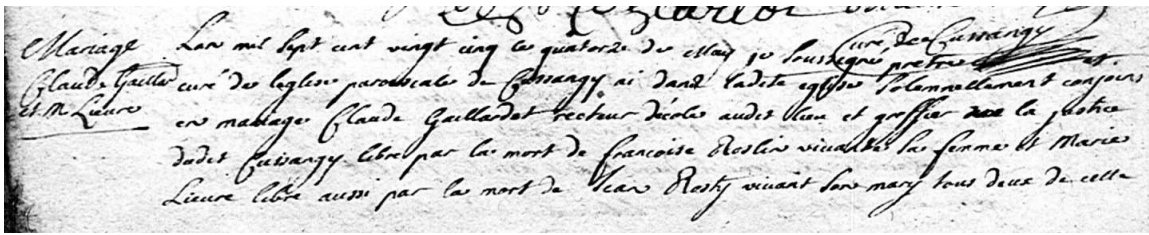 curé de Cussangy
Mariage
Claude Gaillard
et M Lieure
Lan mil Sept cent vingt cinq le quatorze de May je Soussigné prêtre et
curé de leglise paroissiale de Cussangy ai dans ladite eglise Solemnellement conjoins
en mariage Claude Gaillardet recteur décole audit lieu et greffier la justice
dudit Cussangy libre par la mort de francoise Roslin vivante Sa femme et Marie
Lieure libre aussi par la mort de Jean Rosty vivant Son mary tous deux de cette